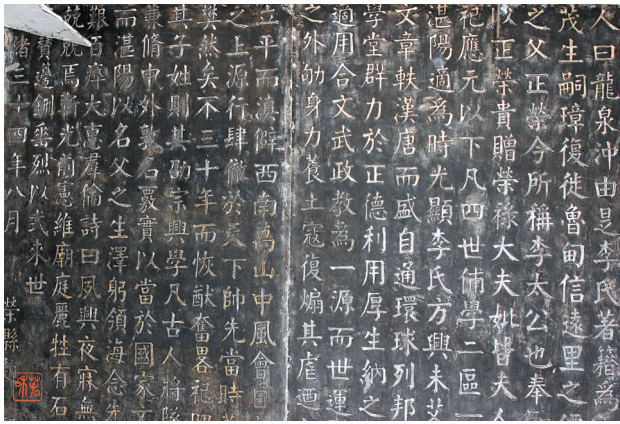 人曰龍泉沖由是李氏著籍爲
茂生嗣璋復徙魯甸信遠里之
之父正榮今所稱李太公也奉
以正榮貴贈榮祿大夫妣皆夫人
祀應元以下凡四世俌學二區一
湛陽適爲時光顯李氏方興未艾
文章軼漢唐而盛自通環球列邦
學堂群力於正德利用厚生納之
適用合文武政教爲一源而世運
之外劬身力養土寇復煽其虐迺
立平而滇僻西南萬山中風會
之上源行肆徹於天下師先當時
樊然矣不三十年而恢猷奮畧祀
其子姓則其劭宗興學凡古人將
兼脩中外敦名覈實以當於國家
而湛陽以名父之生澤躬領海念先
艱百齊大臺羣倫詩曰夙興夜寐無
兢焉斯光前憲維廟庭麗牲有石
賁邊劂垂烈以式來世
緒三十四年八月 榮縣